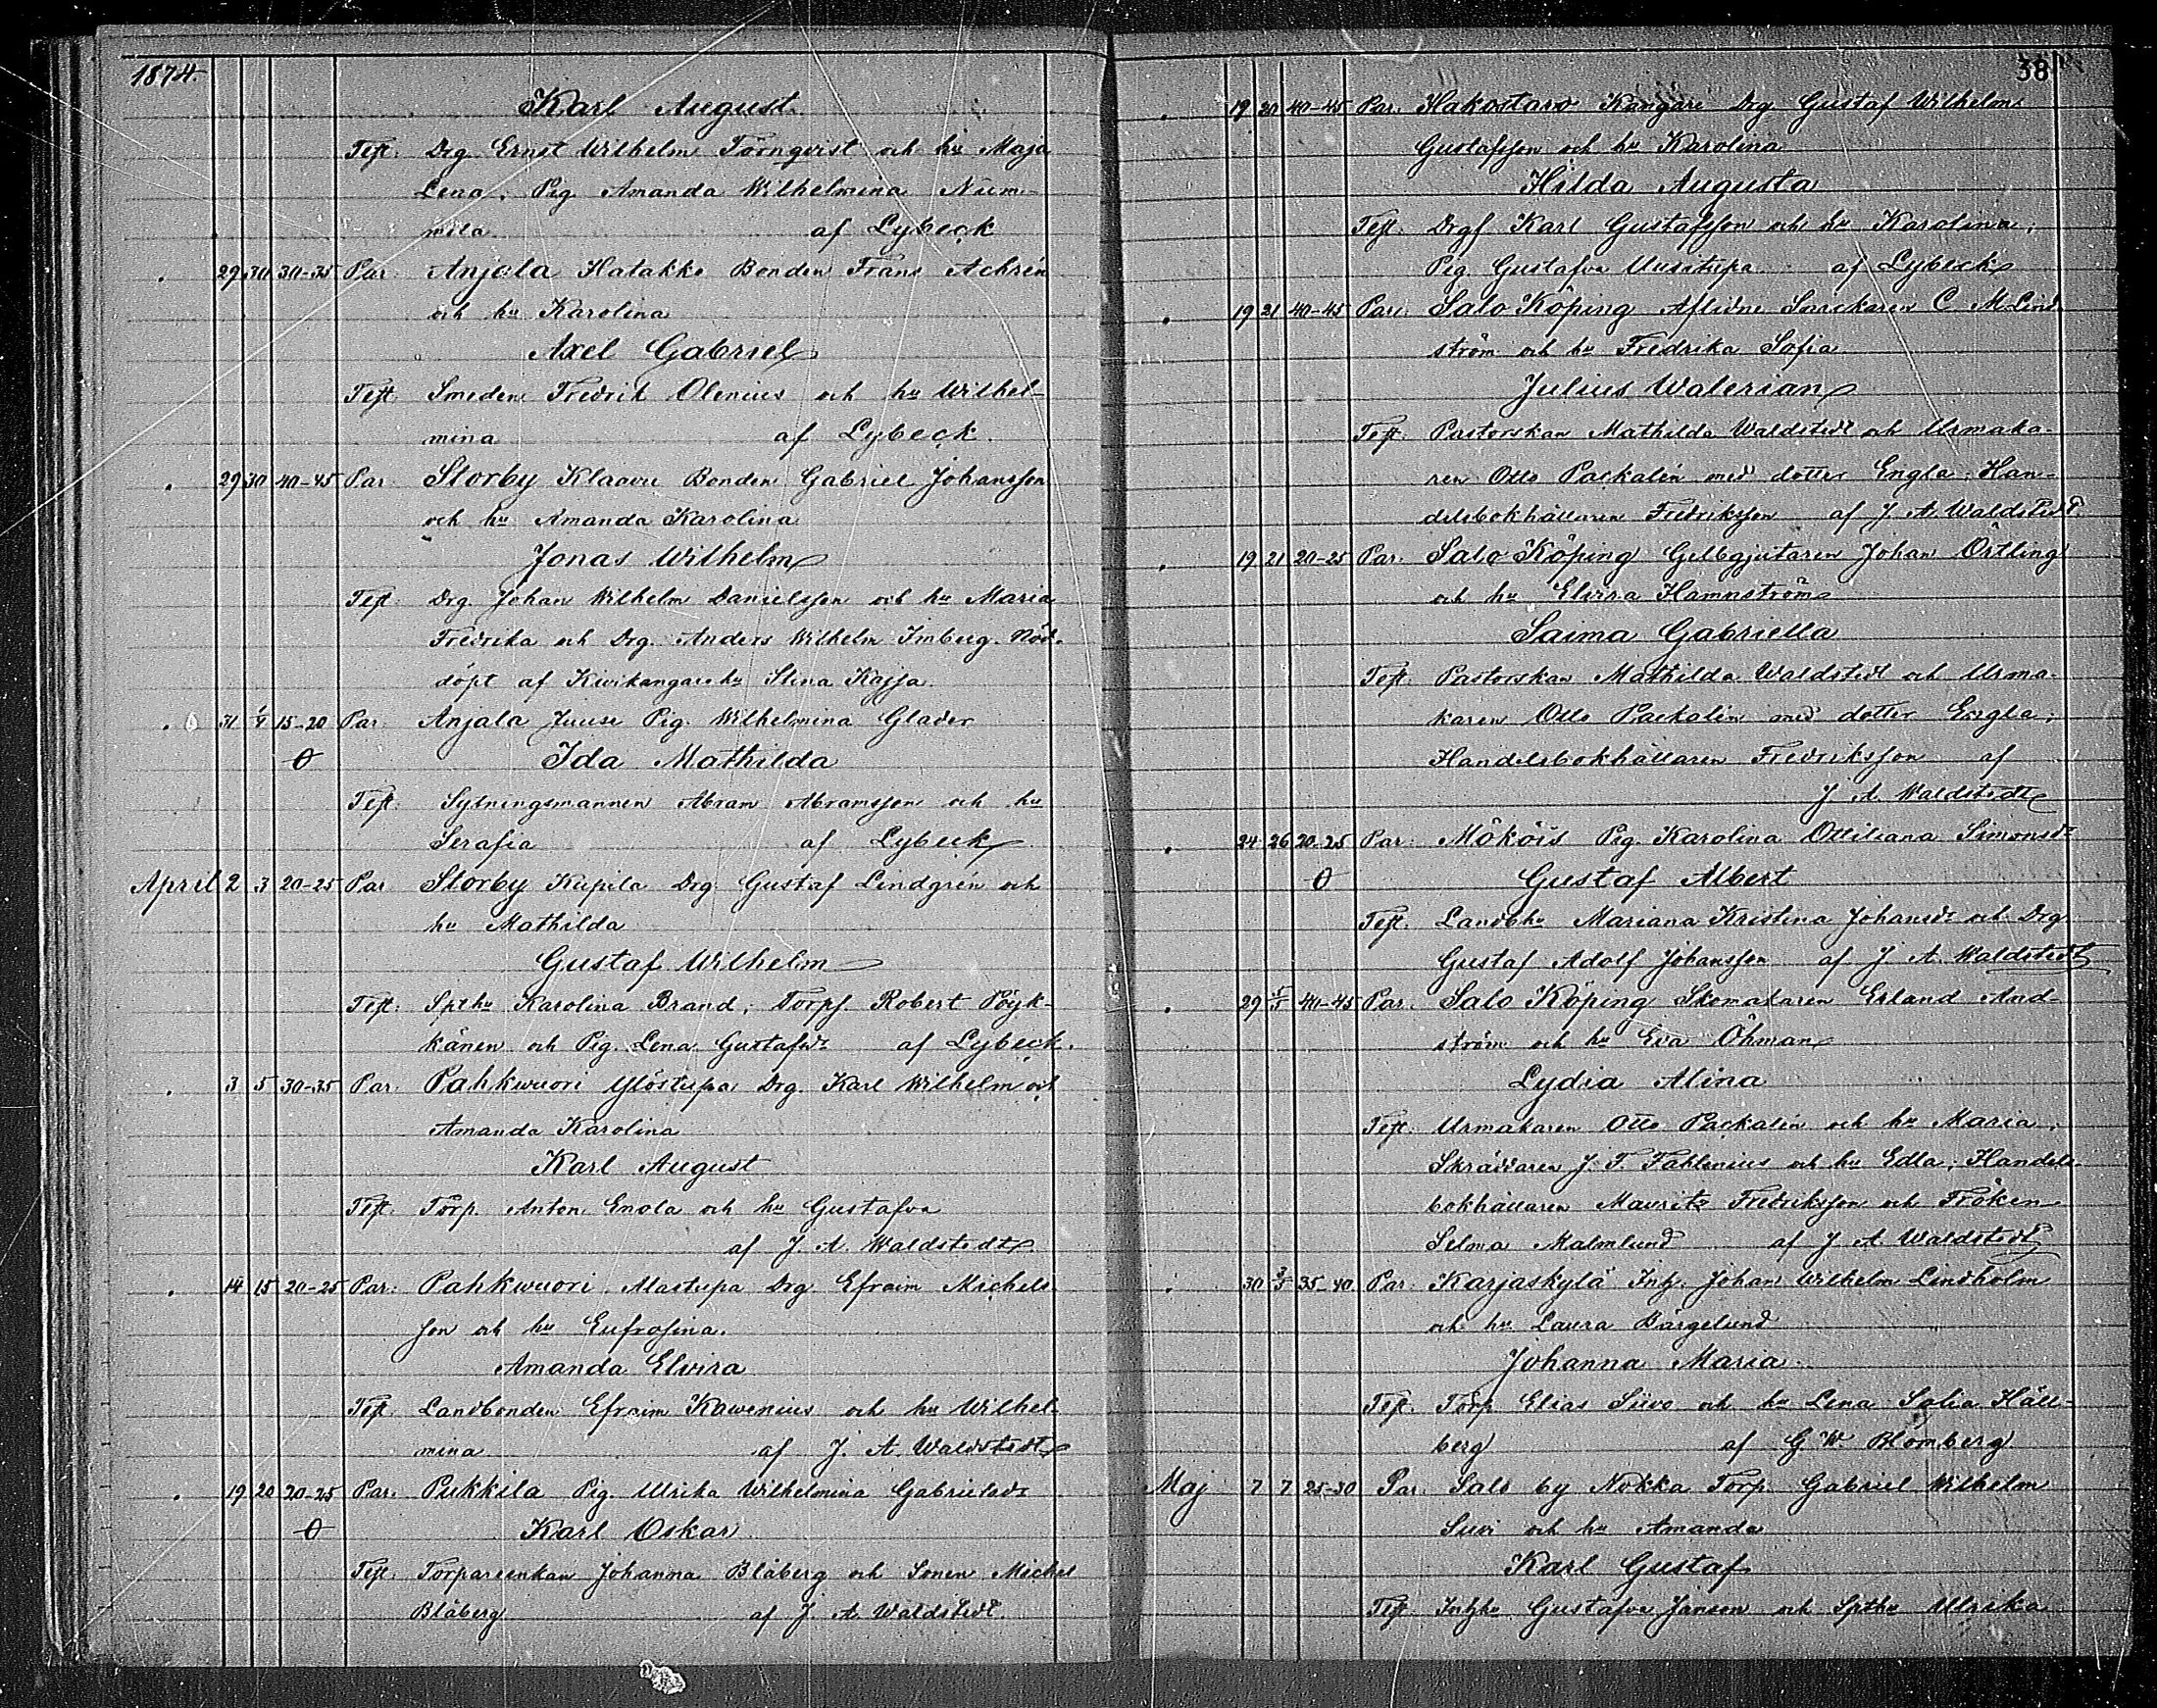 1874.
Karl August
Test. Drg. Ernst Wilhelm Törnqvist och hu Maja
Lena, Pig. Amanda Wilhelmina Num-
mila af Lybeck
29 30 30-35 Par. Anjala Hatakko Bonden Frans Achrén
och hu Karolina
Axel Gabriel
Test. Smeden Fredrik Olenius och hu Wilhel-
mina af Lybeck.
29 30 40-45 Par. Storby Klaavu Bonden Gabriel Johansson
och hu Amanda Karolina
Jonas Wilhelm
Test. Drg. Johan Wilhelm Danielsson och hu Maria
Fredrika och Drg. Anders Wilhelm Imberg. Nöd-
döpt af Kivikangare hu Stina Kajsa.
31 1/4 15-20 Par. Anjala Juuse Pig. Wilhelmina Glader
Ida Mathilda
Test. Sytningsmannen Abram Abramsson och hu
Serafia af Lybeck
April 2 3 20-25 Par. Storby Kupila Drg. Gustaf Lindgrén och
hu Mathilda
Gustaf Wilhelm
Test. Spthu Karolina Brand; Torpf. Robert Pöyk-
känen och Pig. Lena Gustafsdr af Lybeck.
3 5 30-35 Par. Pahkwuori Ylöstupa Drg. Karl Wilhelm och
Amanda Karolina
Karl August
Test. Torp. Anton Enola och hu Gustafva
af J. A. Waldstedt
14 15 20-25 Par. Pahkwuori Alastupa Drg. Efraim Michels-
son och hu Eufrosina.
Amanda Elvira
Test. Landbonden Efraim Kawenius och hu Wilhel-
mina af J. A. Waldstedt
19 20 20-25 Par. Pukkila Pig Ulrika Wilhelmina Gabrielsdr
Karl Oskar
Test. Torpareenkan Johanna Blåberg och Sonen Michel
Blåberg af J. A. Waldstedt.
38
19 20 40-45 Par. Hakostaro Kangare Drg Gustaf Wilhelm
Gustafsson och hu Karolina
Hilda Augusta
Test. Drgs Karl Gustafsson och hu Karolina;
Pig. Gustafva Uusitupa af Lybeck
19 21 40-45 Par. Salo Köping Aflidne Snickaren C. M. Lind-
ström och hu Fredrika Sofia
Julius Walerian
Test. Pastorskan Mathilda Waldstedt och Urmaka-
ren Otto Packalén med dotter Engla; Han-
delsbokhållaren Fredriksson af J. A. Waldstedt.
19 21 20-25 Par. Salo Köping Gelbgjutaren Johan Östling
och hu Elvira Hamnström
Saima Gabriella
Test. Pastorskan Mathilda Waldstedt och Urma-
karen Otto Packalén med dotter Engla;
Handelsbokhållaren Fredriksson af
J. A. Waldstedt
24 26 20-25 Par. Mököis Pig. Karolina Ottiliana Simonsdr
Gustaf Albert
Test. Landbhu Mariana Kristina Johansdr och Drg.
Gustaf Adolf Johansson af J. A. Waldstedt
29 1/5 40-45 Par. Salo Köping Skomakaren Erland And-
ström och hu Eva Öhman
Lydia Alina
Test. Urmakaren Otto Packalén och hu Maria;
Skräddaren J. F. Fahlenius och hu Edla; Handels-
bokhållaren Mauritz Fredriksson och Fröken
Selma Malmlund af J. A. Waldstedt
30 3/5 35-40 Par. Karjaskylä Inh. Johan Wilhelm Lindholm
och hu Laura Bärgelund
Johanna Maria
Test. Torp Elias Siivo och hu Lena Sofia Häll-
berg af G. W. Blomberg
Maj 7 7 25-30 Par. Salo by Nokka Torp. Gabriel Wilhelm
Suvi och hu Amanda
Karl Gustaf
Test. Inhhu Gustafva Janson och Spthu Ulrika